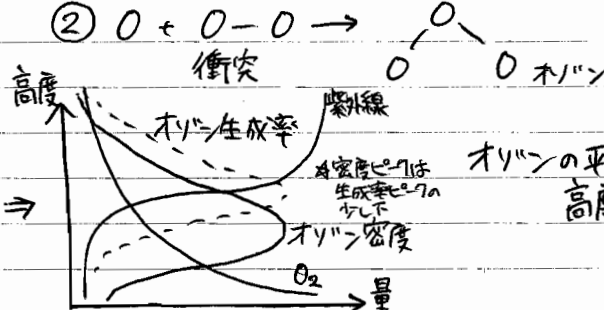 ② O + O-O → O O O オゾン
衝突
高度
オゾン生成率
紫外線
*密度ピークは
生成率ピークの
少し下
オゾンの平
高度
⇒
オゾン密度
O₂
量